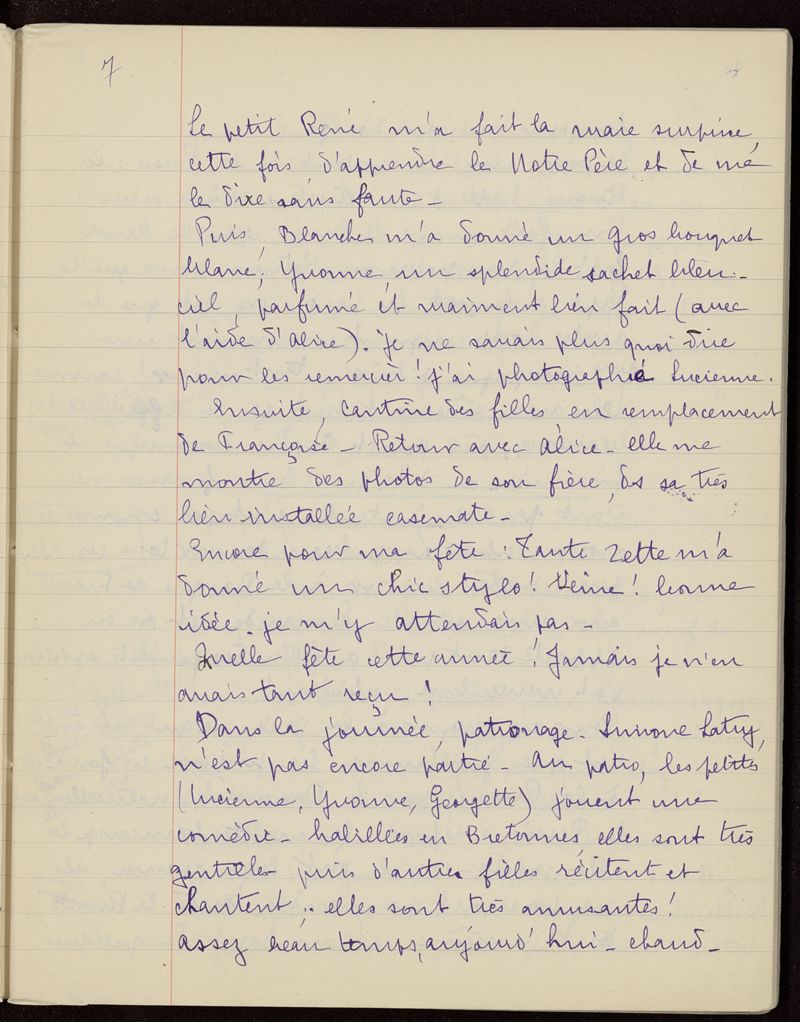 7
Le petit René m'a fait la vraie surprise,
cette fois, d'apprendre le Notre Père et de me
le dire sans faute -
Puis, Blanche m'a donné un gros bouquet
blanc; Yvonne, un splendide sachet bleu-
ciel, parfumé et vraiment bien fait (avec
l'aide d'Alice). Je ne savais plus quoi dire
pour les remercier! j'ai photographié Lucienne.
Ensuite, cantine des filles en remplacement
de Françoise - Retour avec Alice - elle me
montre des photos de son frère, ds sa très
bien installée casemate -
Encore pour ma fête: Tante Zette m'a
donné un chic stylo! Veine! bonne
idée. je m'y attendais pas -
Quelle fête cette année! Jamais je n'en
avais tant reçu!
Dans la journée, patronage. Simone Latry,
n'est pas encore partie - Au patro, les petites
(Lucienne, Yvonne, Georgette) jouent une
comédie - habillées en Bretonnes, elles sont très
gentilles - puis d'autres filles récitent et
chantent; elles sont très amusantes!
assez beau temps, aujourd'hui - chaud -